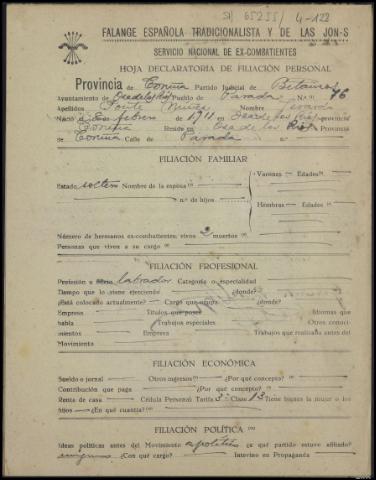 SI/ 65255/4-128
FALANGE ESPAÑOLA TRADICIONALISTA Y DE LAS JON-S
SERVICIO NACIONAL DE EX-COMBATIENTES
HOJA DECLARATORIA DE FILIACIÓN PERSONAL
Provincia de Coruña Partido Judicial de Betanzos
Ayuntamiento de Oza de los Rios Pueblo de Parada N.º 76
Apellidos Nombre
Nació en febrero de 1911 en Oza de los Rios provincia
Coruña Reside en Oza de los Rios Provincia
Coruña Calle de Parada n.º
FILIACIÓN FAMILIAR
Estado soltero Nombre de la esposa
Varones Edades
n.º de hijos
Hembras Edades
Número de hermanos ex-combatientes, vivos 2 muertos
Personas que viven a su cargo
FILIACIÓN PROFESIONAL
Profesión u labrador Categoría o especialidad
Tiempo que lo viene ejerciendo ¿donde?
¿Está colocado actualmente? Cargo que ocupa ¿donde?
Empresa Títulos que posee Idiomas que
habla Trabajos especiales Otros conoci-
mientos Empresa Trabajos que realizaba antes del
Movimiento
FILIACIÓN ECONÓMICA
Sueldo o jornal Otros ingresos ¿Por qué concepto?
Contribución que paga ¿Por qué concepto?
Renta de casa Cédula Personal Tarifa 3ª Clase 13 Tiene bienes la mujer o los
hijos ¿En qué cuantía?
FILIACIÓN POLÍTICA
Ideas políticas antes del Movimiento apolítico ¿a qué partido estuvo afiliado?
ninguno ¿Con qué cargo? Intervino en Propaganda